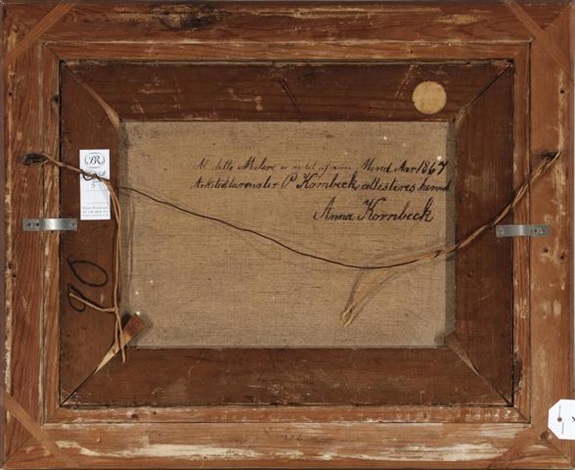 At dette Maleri er malet af min Mand Aar 1867
Arkitekturmaler P Kornbeck attesteres herved
Anna Kornbeck
BR